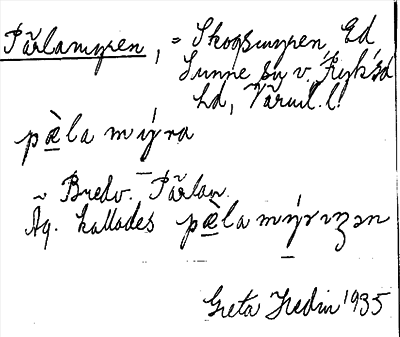 Pärlamyren, = Skogsmyren, Ed
Sunne sn v. Fryksd
hd, Värml. l.
pæ̀la mýra
Bredv. Pärlan.
Äv. kallades pæ̀la mýrɩzən
Greta Hedin 1935